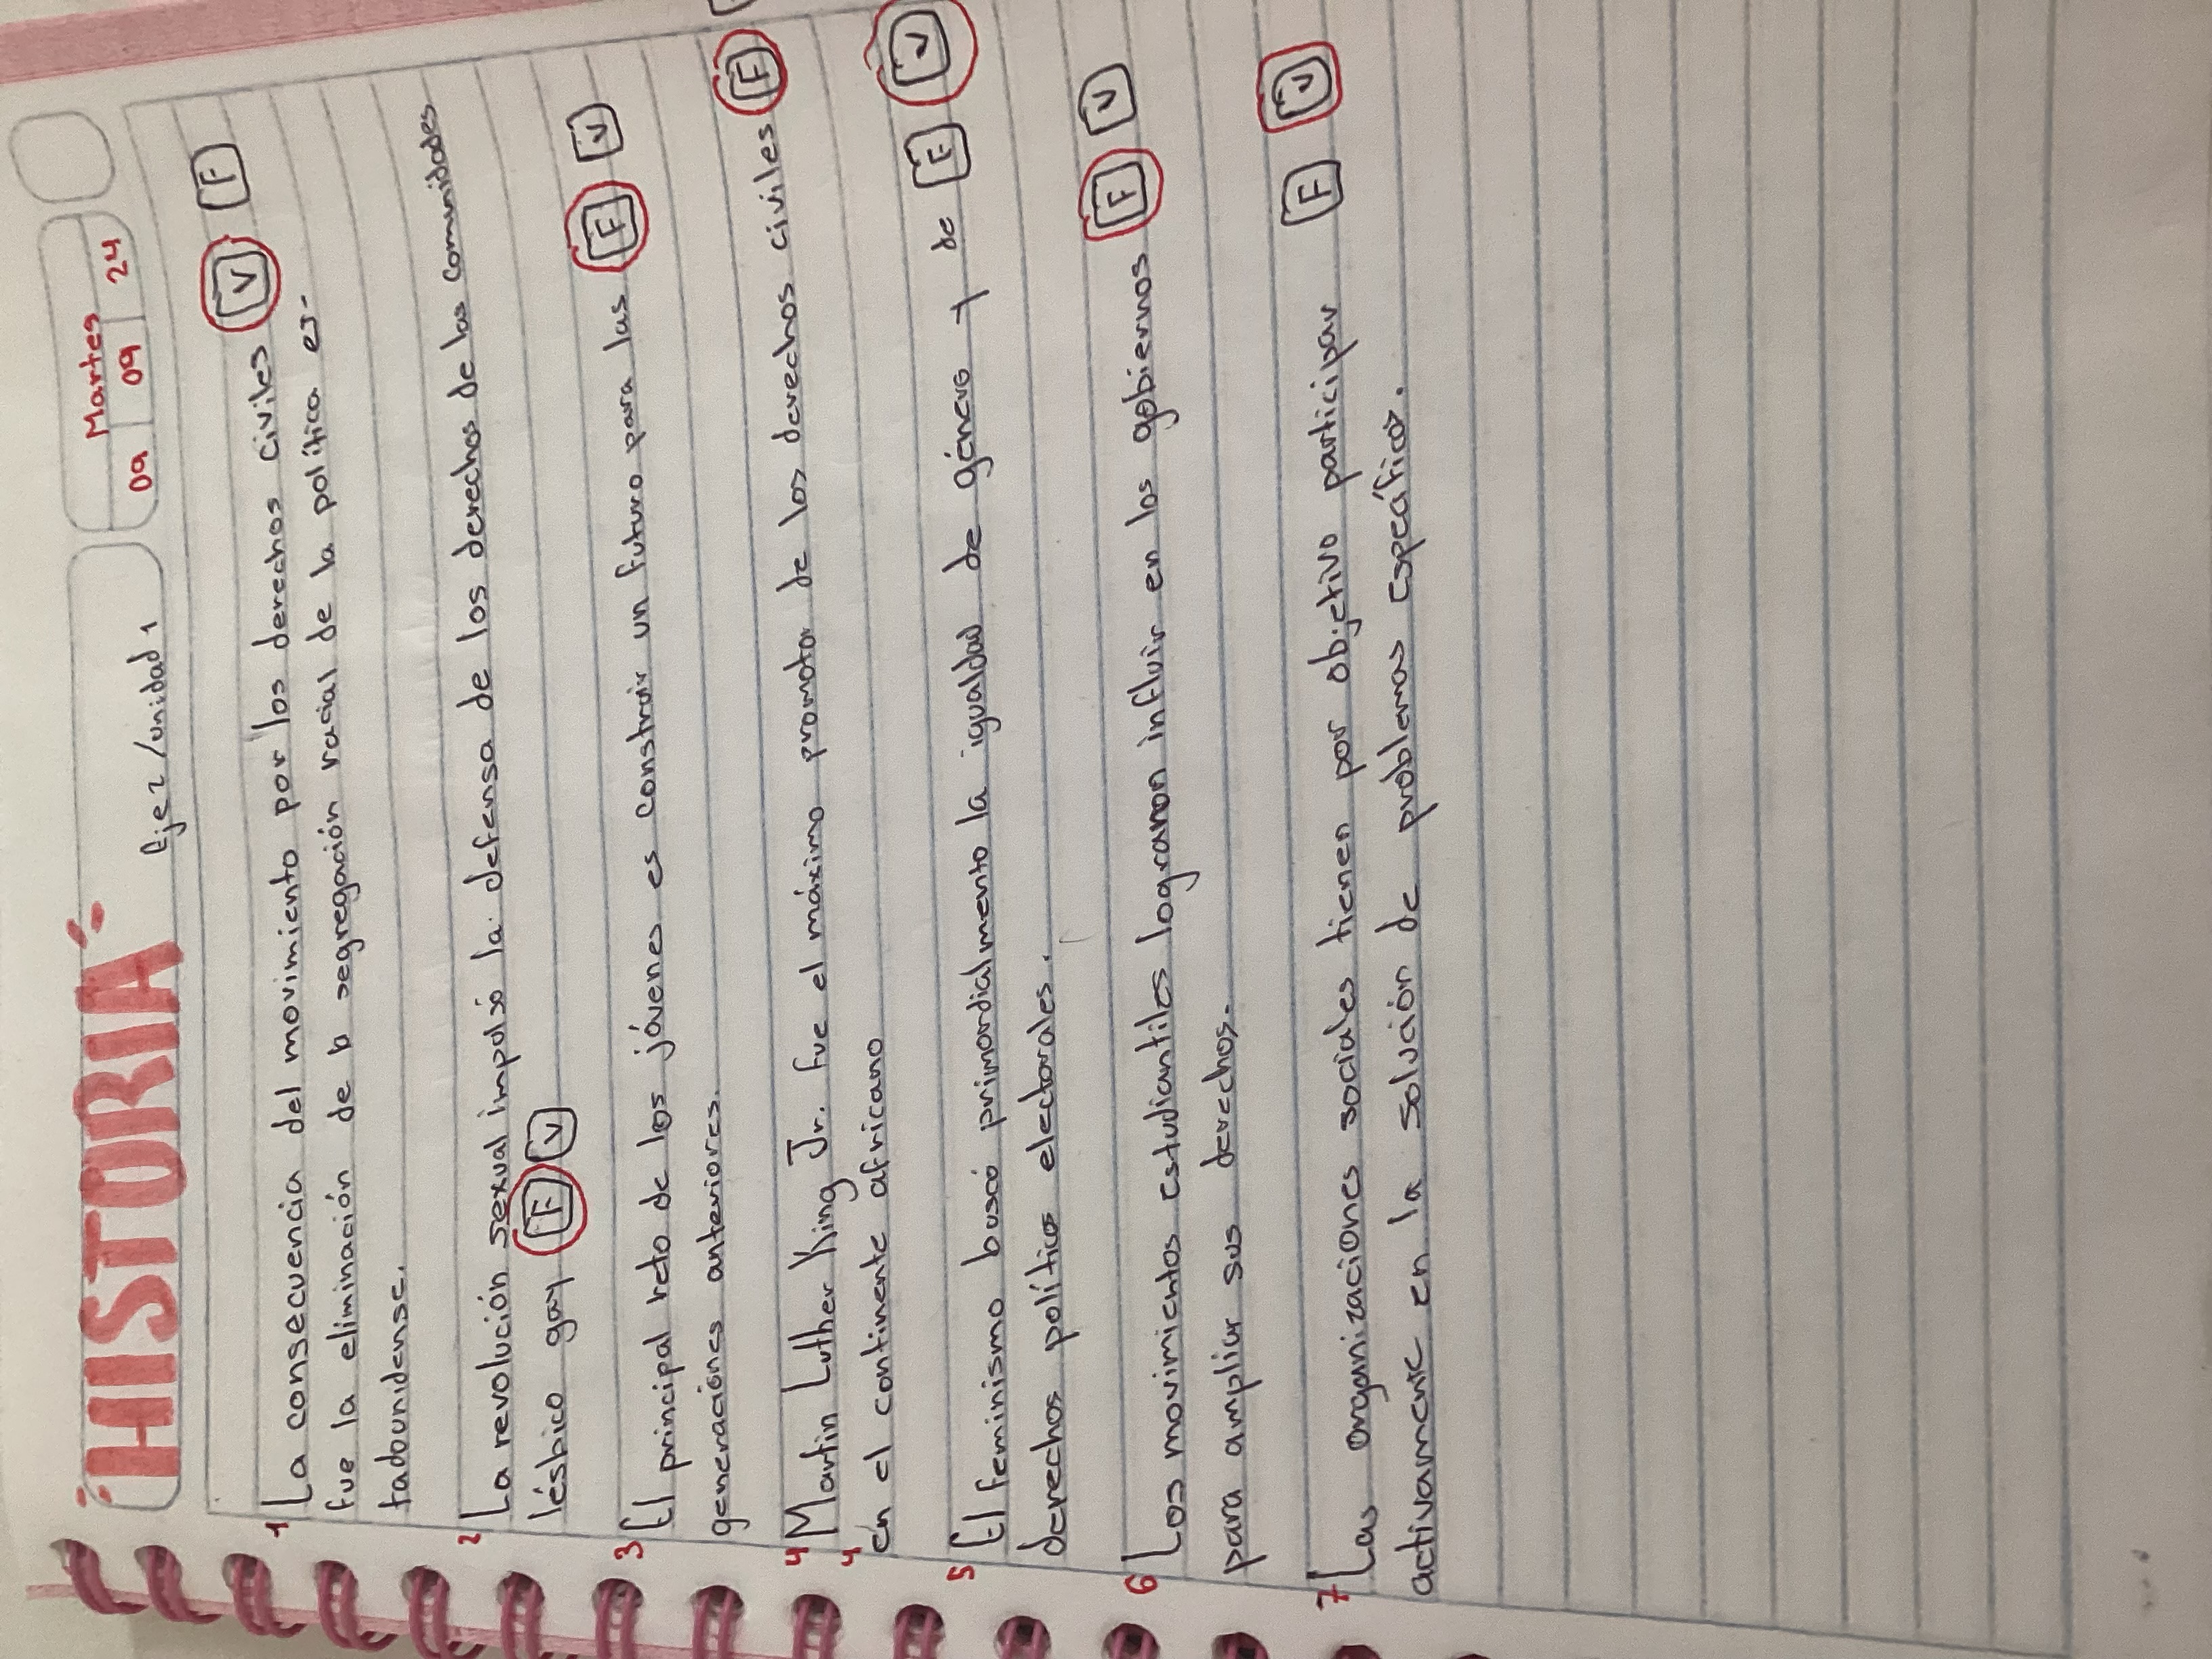 HISTORIA
Martes
09 09 24
Eje 2/unidad 1
1 La consecuencia del movimiento por los derechos civiles V F
fue la eliminación de la segregación racial de la política es-
tadounidense.
2 La revolución sexual impulsó la defensa de los derechos de las comunidades
lésbico gay F V
3 El principal reto de los jóvenes es construir un futuro para las F V
generaciones anteriores.
4 Martin Luther King Jr. fue el máximo promotor de los derechos civiles F
4 en el continente africano
5 El feminismo buscó primordialmento la igualdad de género y de F V
derechos político electorales.
6 Los movimientos estudiantiles lograron influir en los gobiernos F V
para ampliar sus derechos.
7 Las organizaciones sociales tienen por objetivo participar F V
activamente en la solución de problemas específicos.